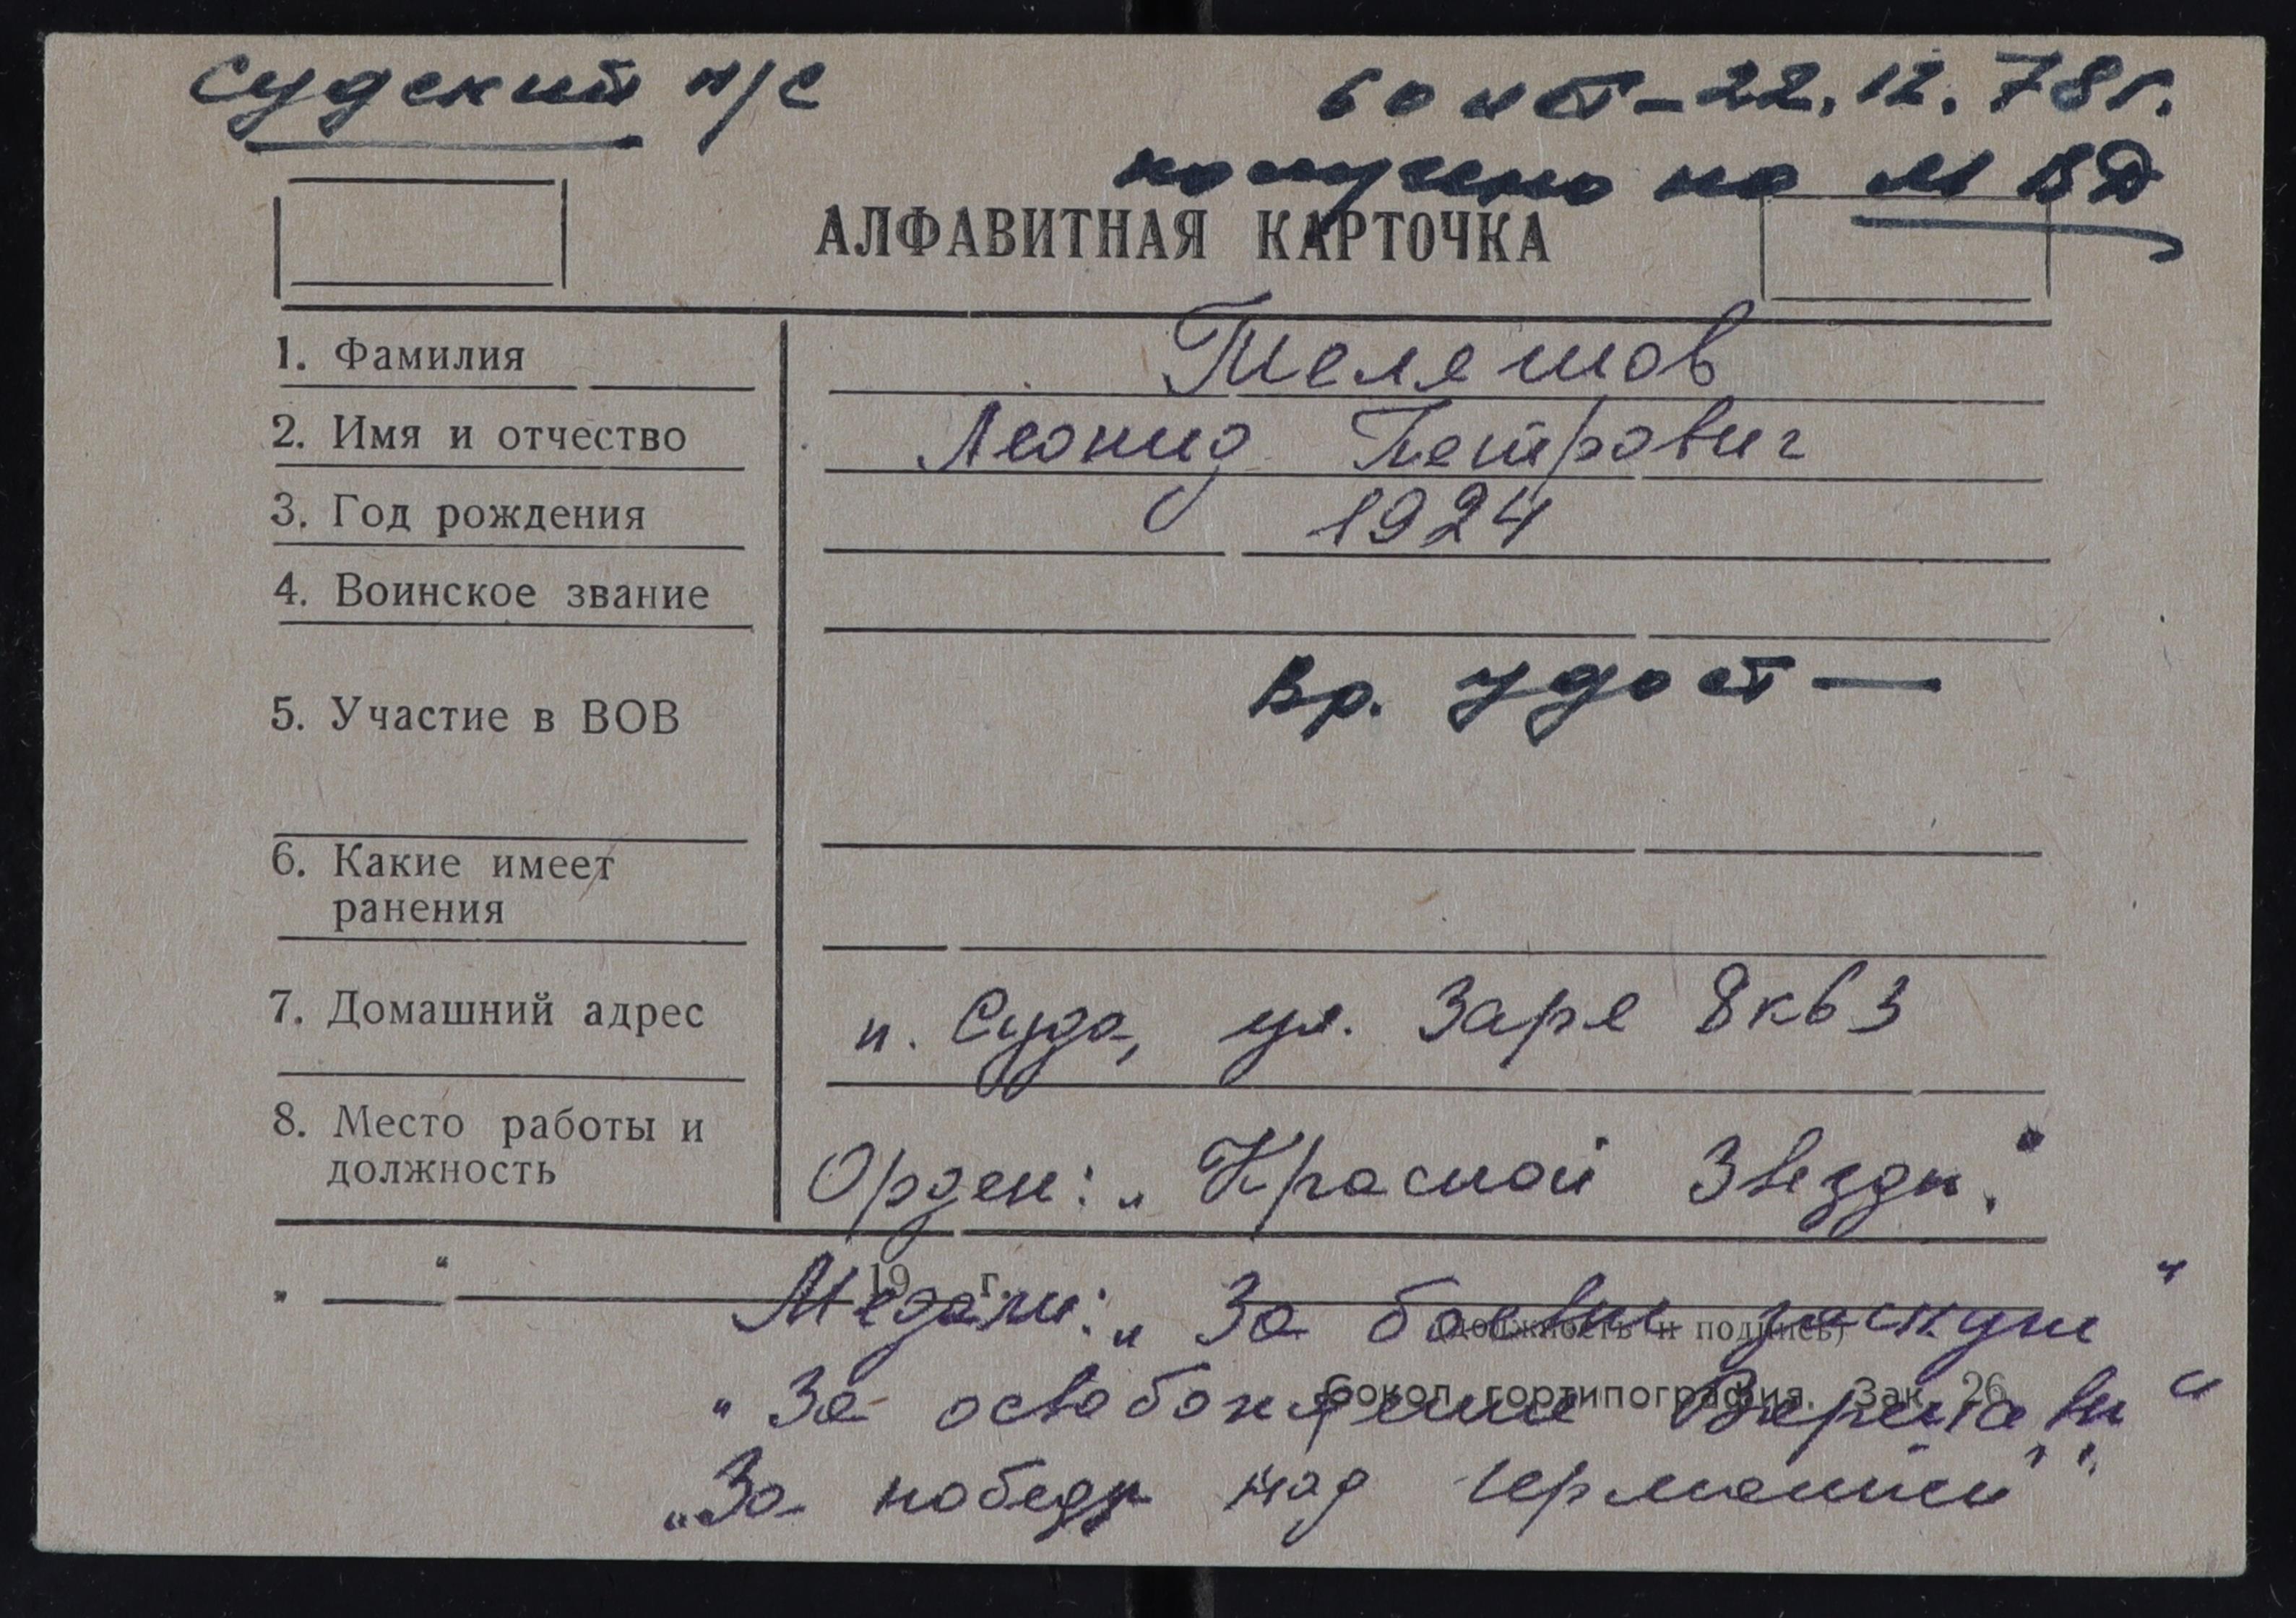 Судский п/с
60 лет - 22.12.78 г.
получено на МВД
АЛФАВИТНАЯ КАРТОЧКА
1. Фамилия Телешов
2. Имя и отчество Леонид Петрович
3. Год рождения 1924
4. Воинское звание
5. Участие в ВОВ Вр. удост —
6. Какие имеет
ранения
7. Домашний адрес п. Суда, ул. Заря 8 кв 3
8. Место работы и
должность Орден: „Красной Звезды."
„ " 19 г.
Медали: „За боевые заслуги"
(должность и подпись)
„За освобождение Варшавы"
Сокол, гортипография. Зак. 26
„За победу над Германией"